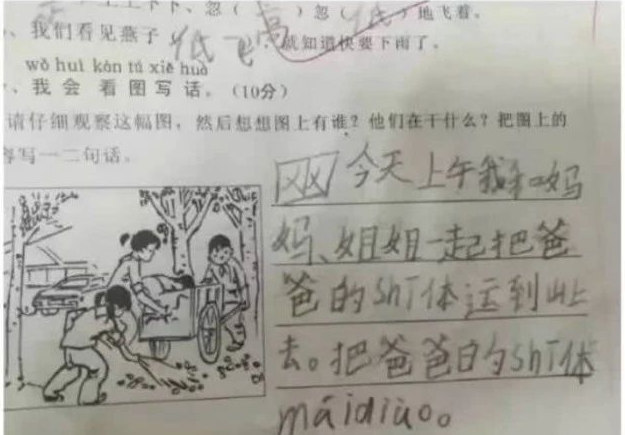 上上下下、忽（高）忽（低）地飞着。
、我们看见燕子低飞，就知道快要下雨了。
wǒ huì kàn tú xiě huà
、我会看图写话。（10分）
请仔细观察这幅图，然后想想图上有谁？他们在干什么？把图上的
写一二句话。
今天上午我和妈
妈、姐姐一起把爸
爸的ShT体运到山上
去。把爸爸的ShT体
máidiào。